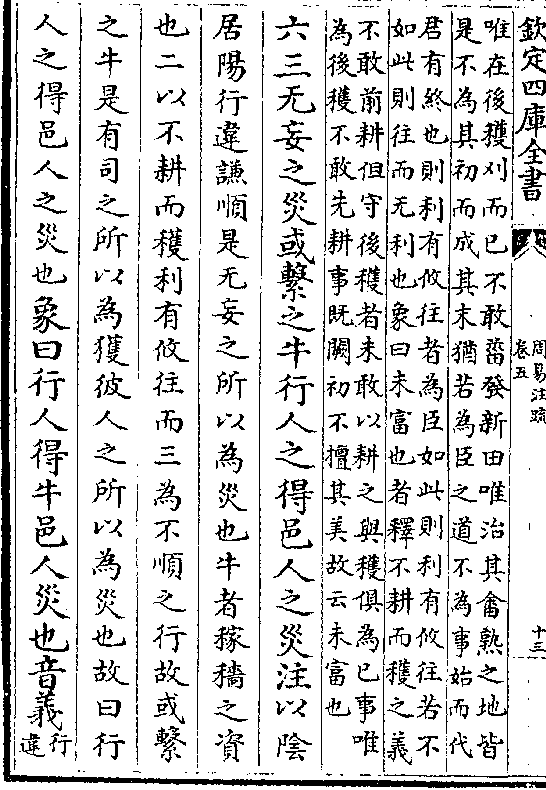 欽定四庫全書
周易注疏
卷五
十三
唯在後穫刈而已不敢菑發新田唯治其畬熟之地皆
是不為其初而成其末猶若為臣之道不為事始而代
君有終也則利有攸往者為臣如此則利有攸往若不
如此則往而无利也象曰未富也者釋不耕而穫之義
不敢前耕但守後穫者未敢以耕之與穫俱為已事唯
為後穫不敢先耕事既闕初不擅其美故云未富也
六三无妄之災或繫之牛行人之得邑人之災注以陰
居陽行違謙順是无妄之所以為災也牛者稼穡之資
也二以不耕而穫利有攸往而三為不順之行故或繫
之牛是有司之所以為獲彼人之所以為災也故曰行
人之得邑人之災也象曰行人得牛邑人災也音義行
違